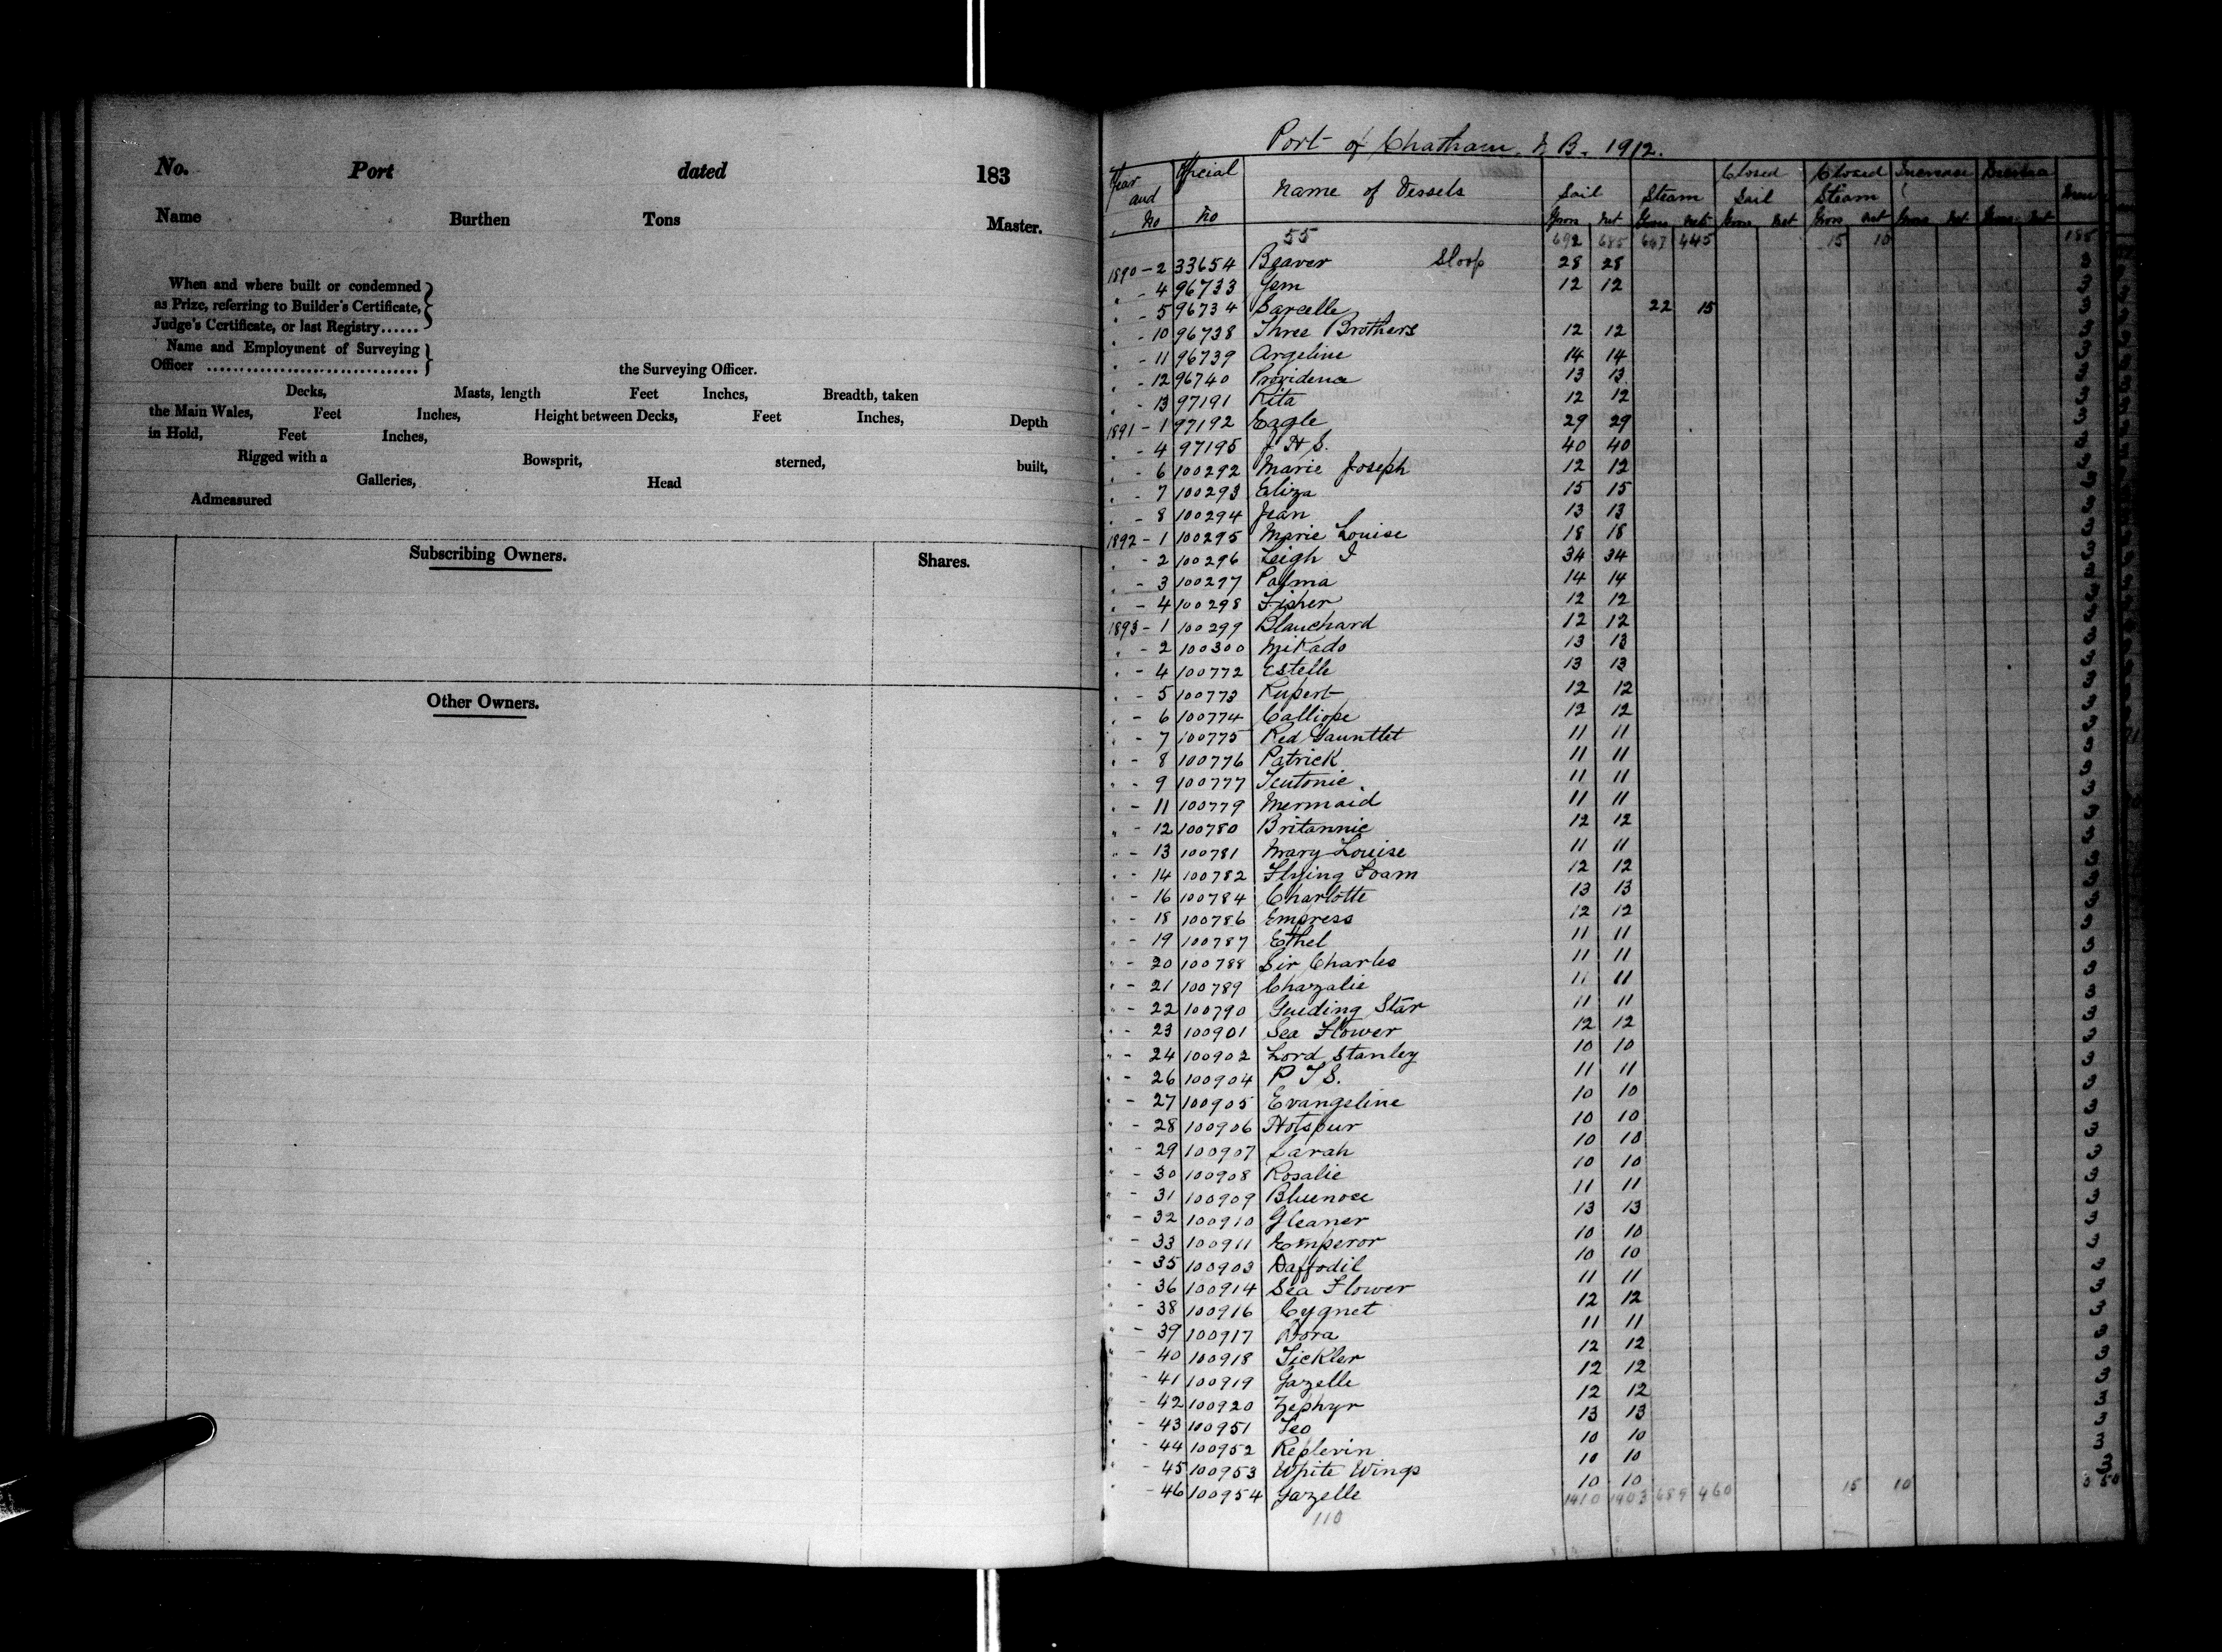 No. Port dated 183
Name Burthen Tons Master.
When and where built or condemned
as Prize, referring to Builder's Certificate,
Judge's Certificate, or last Registry......
Name and Employment of Surveying
Officer ................................ the Surveying Officer.
Decks, Masts, length Feet Inches, Breadth, taken
the Main Wales, Feet Inches, Height between Decks, Feet Inches, Depth
in Hold, Feet Inches,
Rigged with a Bowsprit, sterned, built,
Galleries, Head
Admeasured
Subscribing Owners. Shares.
Other Owners.
Port of Chatham, N.B. 1912.
Year and No Official No Name of Vessels Sail Steam Closed Sail Closed Steam Increase
Gross Net Gross Net Gross Net Gross Net Gross Net Gross Net
55 692 685 667 445 15 10
1890 - 2 33654 Beaver Sloop 28 28 3
" - 4 96733 Gem 12 12 3
" - 5 96734 Sarcelle 22 15 3
" - 10 96738 Three Brothers 12 12 3
" - 11 96739 Argeline 14 14 3
" - 12 96740 Providence 13 13 3
" - 13 97191 Rita 12 12 3
1891 - 1 97192 Eagle 29 29 3
" - 4 97195 J H S. 40 40 3
" - 6 100292 Marie Joseph 12 12 3
" - 7 100293 Eliza 15 15 3
" - 8 100294 Jean 13 13 3
1892 - 1 100295 Marie Louise 18 18 3
" - 2 100296 Leigh J 34 34 3
" - 3 100297 Palma 14 14 3
" - 4 100298 Fisher 12 12 3
1893 - 1 100299 Blanchard 12 12 3
" - 2 100300 Mikado 13 13 3
" - 4 100772 Estelle 13 13 3
" - 5 100773 Rupert 12 12 3
" - 6 100774 Calliope 12 12 3
" - 7 100775 Red Gauntlet 11 11 3
" - 8 100776 Patrick 11 11 3
" - 9 100777 Teutonic 11 11 3
" - 11 100779 Mermaid 11 11 3
" - 12 100780 Britannic 12 12 3
" - 13 100781 Mary Louise 11 11 3
" - 14 100782 Flying Foam 12 12 3
" - 16 100784 Charlotte 13 13 3
" - 18 100786 Empress 12 12 3
" - 19 100787 Ethel 11 11 3
" - 20 100788 Sir Charles 11 11 3
" - 21 100789 Chazalie 11 11 3
" - 22 100790 Guiding Star 11 11 3
" - 23 100901 Sea Flower 12 12 3
" - 24 100902 Lord Stanley 10 10 3
" - 26 100904 P T S. 11 11 3
" - 27 100905 Evangeline 10 10 3
" - 28 100906 Hotspur 10 10 3
" - 29 100907 Sarah 10 10 3
" - 30 100908 Rosalie 10 10 3
" - 31 100909 Bluenose 11 11 3
" - 32 100910 Gleaner 13 13 3
" - 33 100911 Emperor 10 10 3
" - 35 100903 Daffodil 10 10 3
" - 36 100914 Sea Flower 11 11 3
" - 38 100916 Cygnet 12 12 3
" - 39 100917 Dora 11 11 3
" - 40 100918 Tickler 12 12 3
" - 41 100919 Gazelle 12 12 3
" - 42 100920 Zephyr 12 12 3
" - 43 100951 Leo 13 13 3
" - 44 100952 Replevin 10 10 3
" - 45 100953 White Wings 10 10 3
" - 46 100954 Gazelle 10 10
110 1410 1403 689 460 15 10